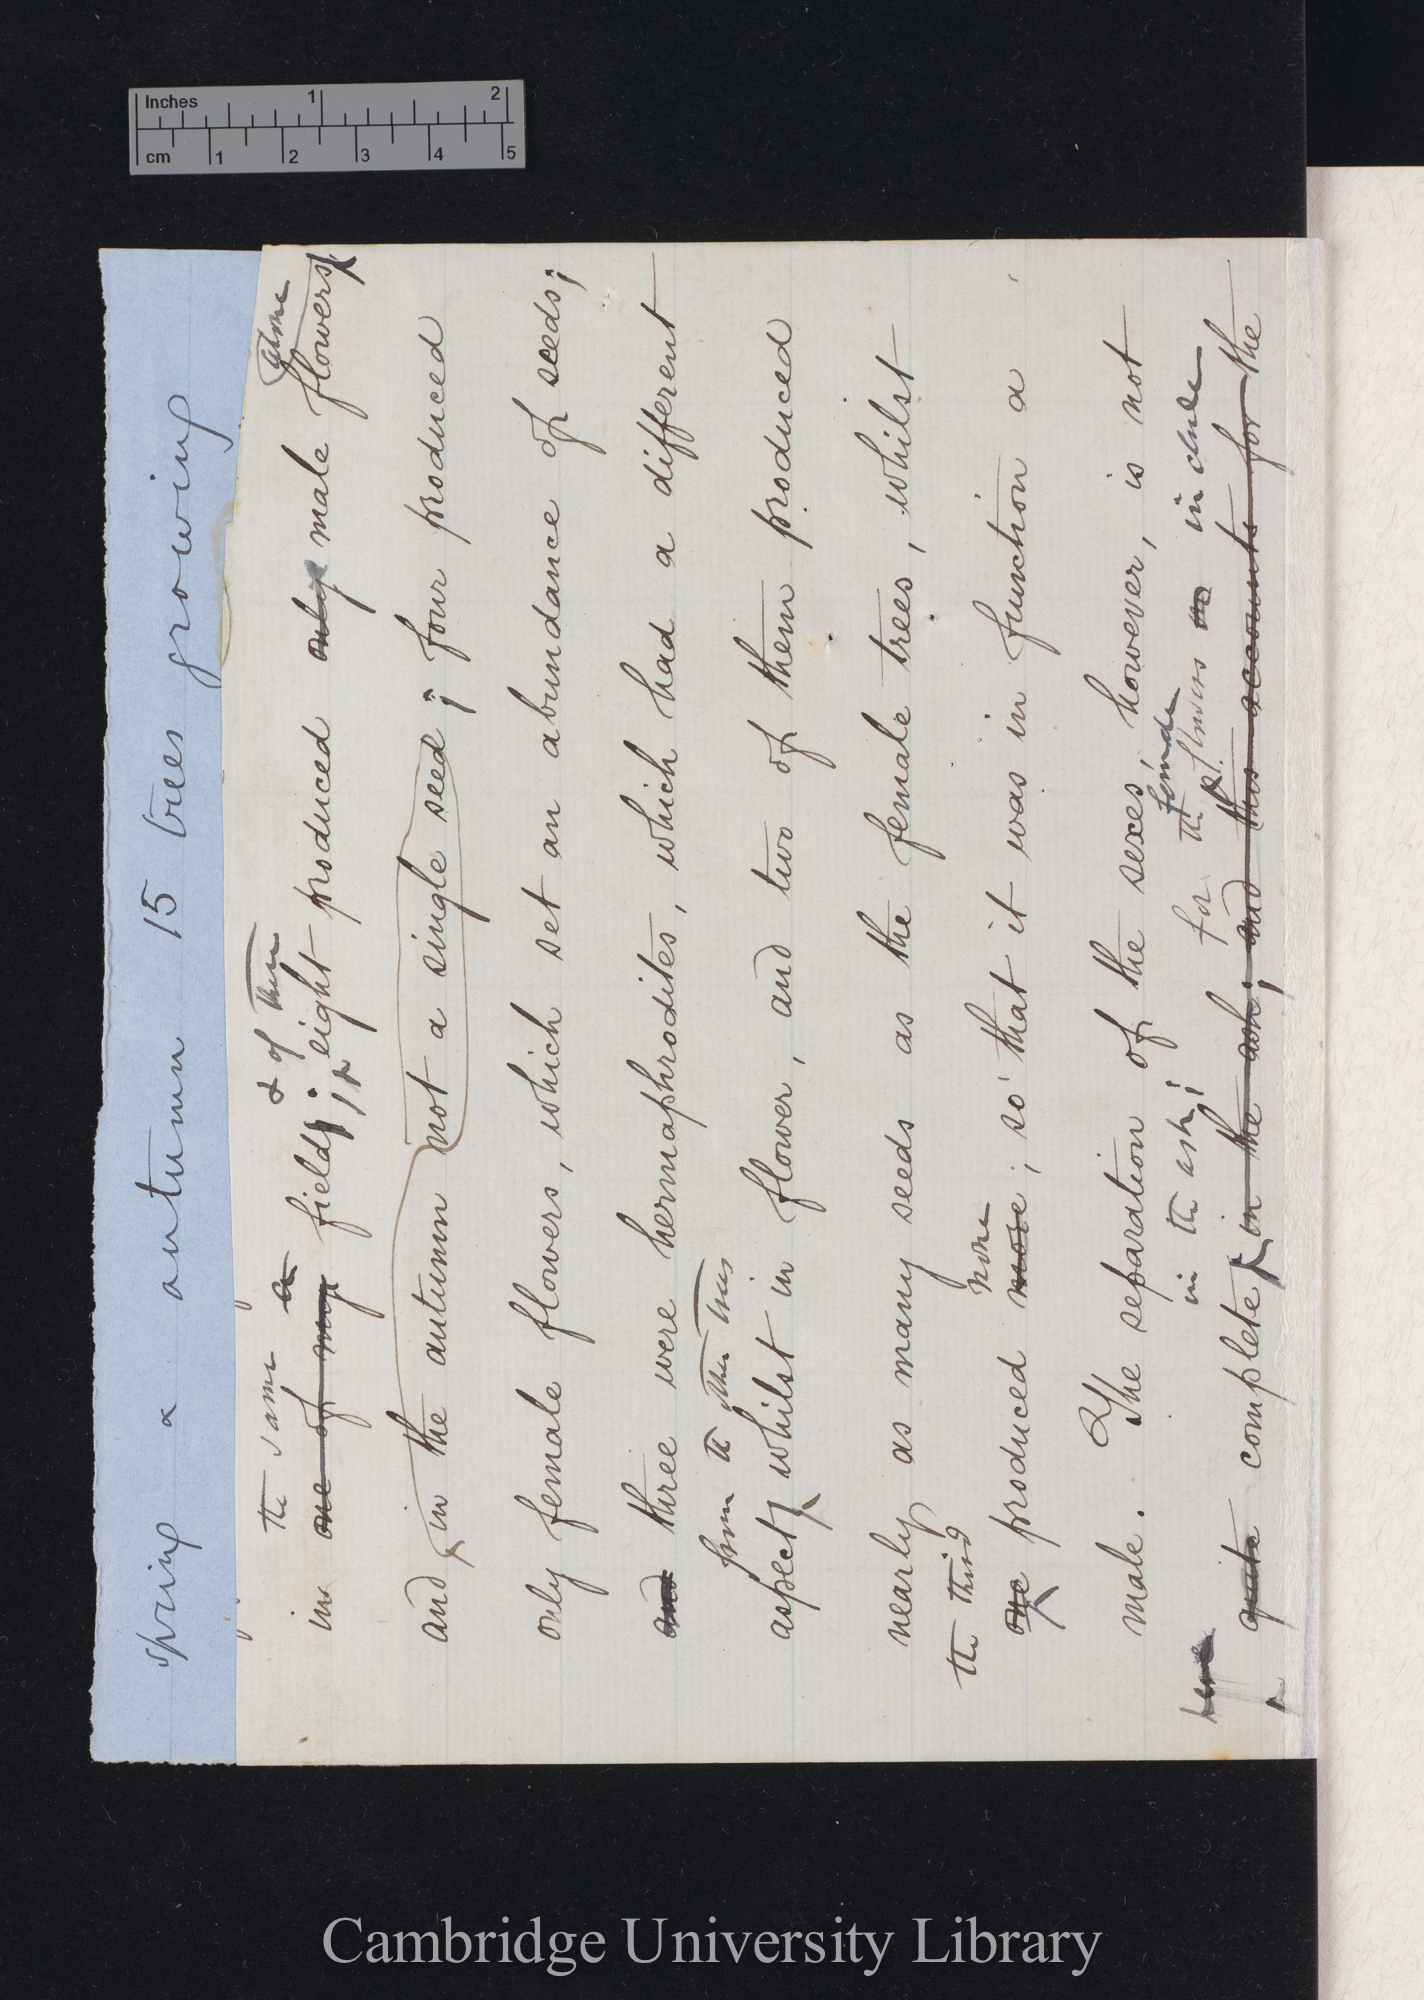 Inches 1 2
cm 1 2 3 4 5
spring & autumn 15 trees growing
the same a & of them alone
in one of my field; eight produced only male flowers
and in the autumn not a single seed; four produced
only female flowers, which set an abundance of seeds;
and three were hermaphrodites, which had a different
from the other trees
aspect whilst in flower, and two of them produced
nearly as many seeds as the female trees, whilst
the third none
one produced more; so that it was in function a
male. The separation of the sexes, however, is not
female
in the ash; for the flowers include
quite complete in the ash; and this accounts for the
Cambridge University Library